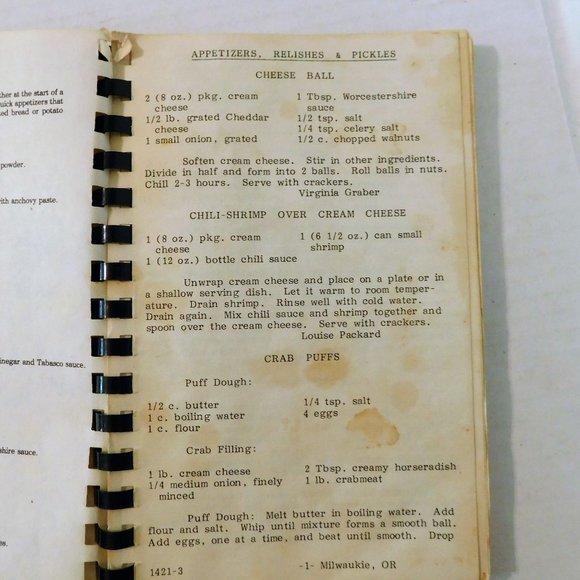 ther at the start of a
uick appetizers that
ed bread or potato
powder.
ith anchovy paste.
inegar and Tabasco sauce.
shire sauce.
es.
APPETIZERS, RELISHES & PICKLES
CHEESE BALL
2 (8 oz.) pkg. cream
cheese
1/2 lb. grated Cheddar
cheese
1 small onion, grated
1 Tbsp. Worcestershire
sauce
1/2 tsp. salt
1/4 tsp. celery salt
1/2 c. chopped walnuts
Soften cream cheese. Stir in other ingredients.
Divide in half and form into 2 balls. Roll balls in nuts.
Chill 2-3 hours. Serve with crackers.
Virginia Graber
CHILI-SHRIMP OVER CREAM CHEESE
1 (8 oz.) pkg. cream
cheese
1 (12 oz.) bottle chili sauce
1 (6 1/2 oz.) can small
shrimp
Unwrap cream cheese and place on a plate or in
a shallow serving dish. Let it warm to room temper-
ature. Drain shrimp. Rinse well with cold water.
Drain again. Mix chili sauce and shrimp together and
spoon over the cream cheese. Serve with crackers.
Louise Packard
CRAB PUFFS
Puff Dough:
1/2 c. butter
1 c. boiling water
1 c. flour
1/4 tsp. salt
4 eggs
Crab Filling:
1 lb. cream cheese
1/4 medium onion, finely
minced
2 Tbsp. creamy horseradish
1 lb. crabmeat
Puff Dough: Melt butter in boiling water. Add
flour and salt. Whip until mixture forms a smooth ball.
Add eggs, one at a time, and beat until smooth. Drop
1421-3
-1- Milwaukie, OR